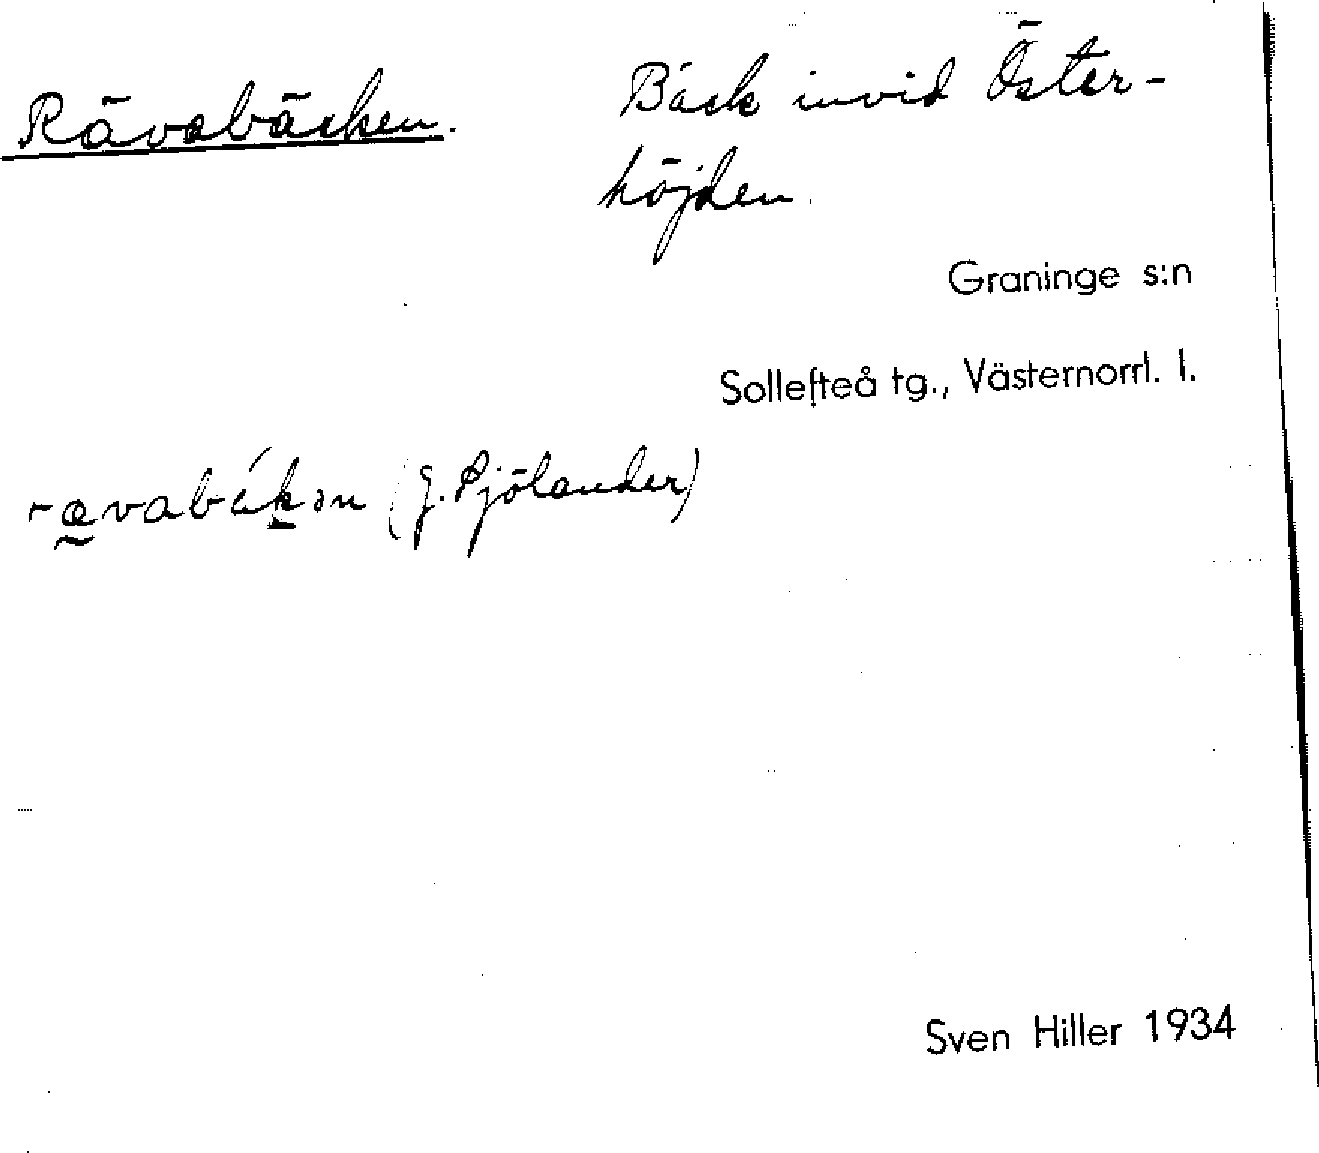 Rävabäcken.
Bäck invid Öster-
höjden.
Graninge s:n
Sollefteå tg., Västernorrl. l.
(J. Sjölander)
Sven Hiller 1934